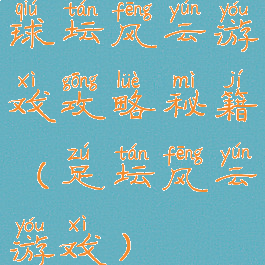 qiú tán fēng yún yóu
球坛风云游
xì gōng lüè mì jí
戏攻略秘籍
zú tán fēng yún
(足坛风云
yóu xì
游戏)